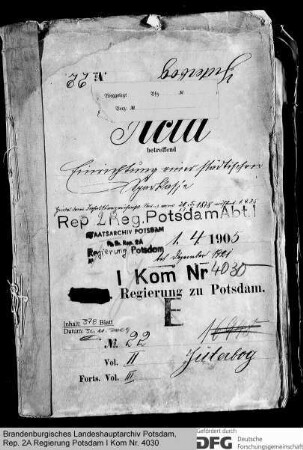 No 22
Jüterbog
Acta
betreffend
Einrichtung einer städtischen
Sparkasse
Rep 2 Reg. Potsdam Abt. I
STAATSARCHIV POTSDAM
Pr. Br. Rep. 2A
Regierung Potsdam
1. 4 1905
Dezember 1921
I Kom Nr 4030
Regierung zu Potsdam.
E
Inhalt 378 Blatt
Datum
No 22
Vol. II
Jüterbog
Forts. Vol. III
Brandenburgisches Landeshauptarchiv Potsdam,
Rep. 2A Regierung Potsdam I Kom Nr. 4030
Gefördert durch
DFG Deutsche
Forschungsgemeinschaft